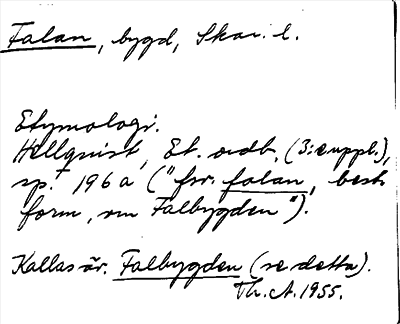 Falan, bygd, Skar. l.
Etymologi.
Hellquist, Et. ordb. (3:e uppl.),
sp. 196 a ("fsv. falan, best.
form, om Falbygden").
Kallas är. Falbygden (se detta).
Th. A. 1955.